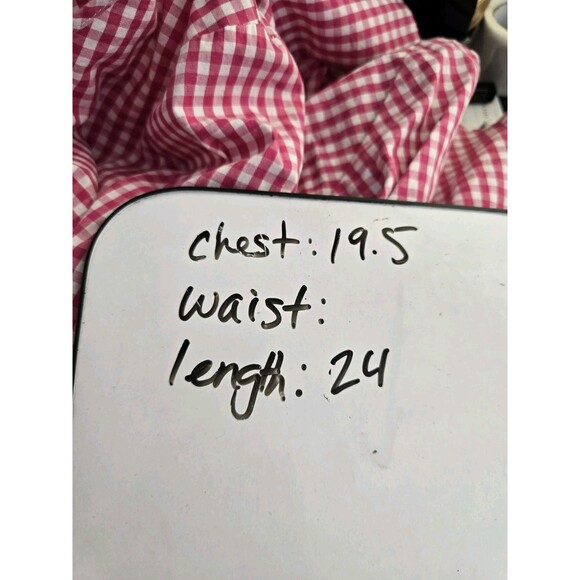 chest: 19.5
waist:
length: 24